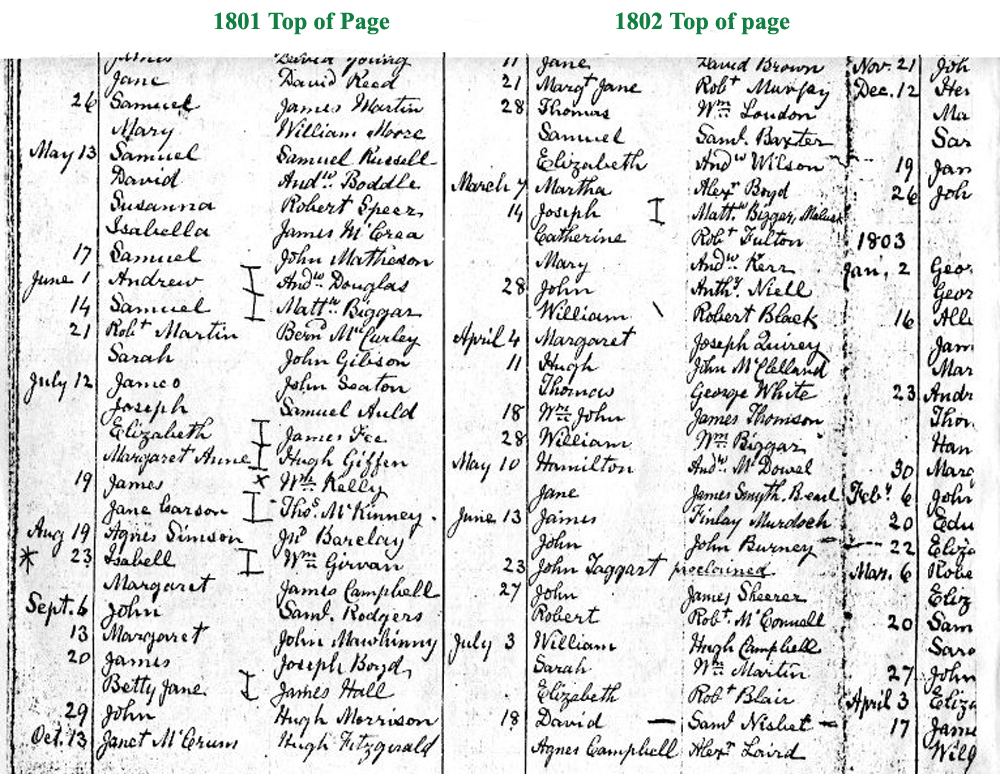 1801 Top of Page
1802 Top of page
James David Young
Jane David Reed
26 Samuel James Martin
Mary William Moore
May 13 Samuel Samuel Russell
David Andw. Boddle
Susanna Robert Speer
Isabella James McCrea
17 Samuel John Matheson
June 1 Andrew Andw Douglas
14 Samuel Mattw Biggar
21 Robt Martin Bernd McCurley
Sarah John Gibson
July 12 James John Seaton
Joseph Samuel Auld
Elizabeth James Fee
Margaret Anne Hugh Giffen
19 James x Wm Kelly
Jane Carson Thos. McKinney.
Aug 19 Agnes Simson Jno Barclay
* 23 Isabell Wm Girvan
Margaret James Campbell
Sept. 6 John Saml. Rodgers
13 Margaret John Mawhinny
20 James Joseph Boyd
Betty Jane James Hall
29 John Hugh Morrison
Oct. 13 Janet McCrums Hugh Fitzgerald
11 Jane David Brown
21 Margt Jane Robt
28 Thomas Wm Loudon
Samuel Saml. Baxter
Elizabeth Andw Wilson
March 7 Martha Alexr Boyd
14 Joseph Mattw. Bigger,
Catherine Robt Fulton
Mary Andw. Kerr
28 John Anthy. Niell
William \ Robert Black
April 4 Margaret Joseph
11 Hugh John McClelland
Thomas George White
18 Wm John James Thomson
28 William Wm Biggar
May 10 Hamilton Andw. McDowel
Jane James Smyth.
June 13 James Finlay Murdoch
John John Burney
23 John Taggart proclaimed
27 John James Sheerer
Robert Robt. McConnell
July 3 William Hugh Campbell
Sarah Wm Martin
Elizabeth Robt Blair
18 David — Saml Nisbet —
Agnes Campbell Alexr Laird
Nov. 21 Joh
Dec. 12 Hen
Ma
Sar
19 Jan
26 Joh
1803
Jan. 2 Geo
Geor
16 Alle
Jam
Mar
23 Andr
Thon
Han
30 Marg
Feby. 6 John
20 Edu
22 Eliza
Mar. 6 Robe
Eliz
20 Sam
Sara
27 John
April 3 Eliza
17 Jame
Will